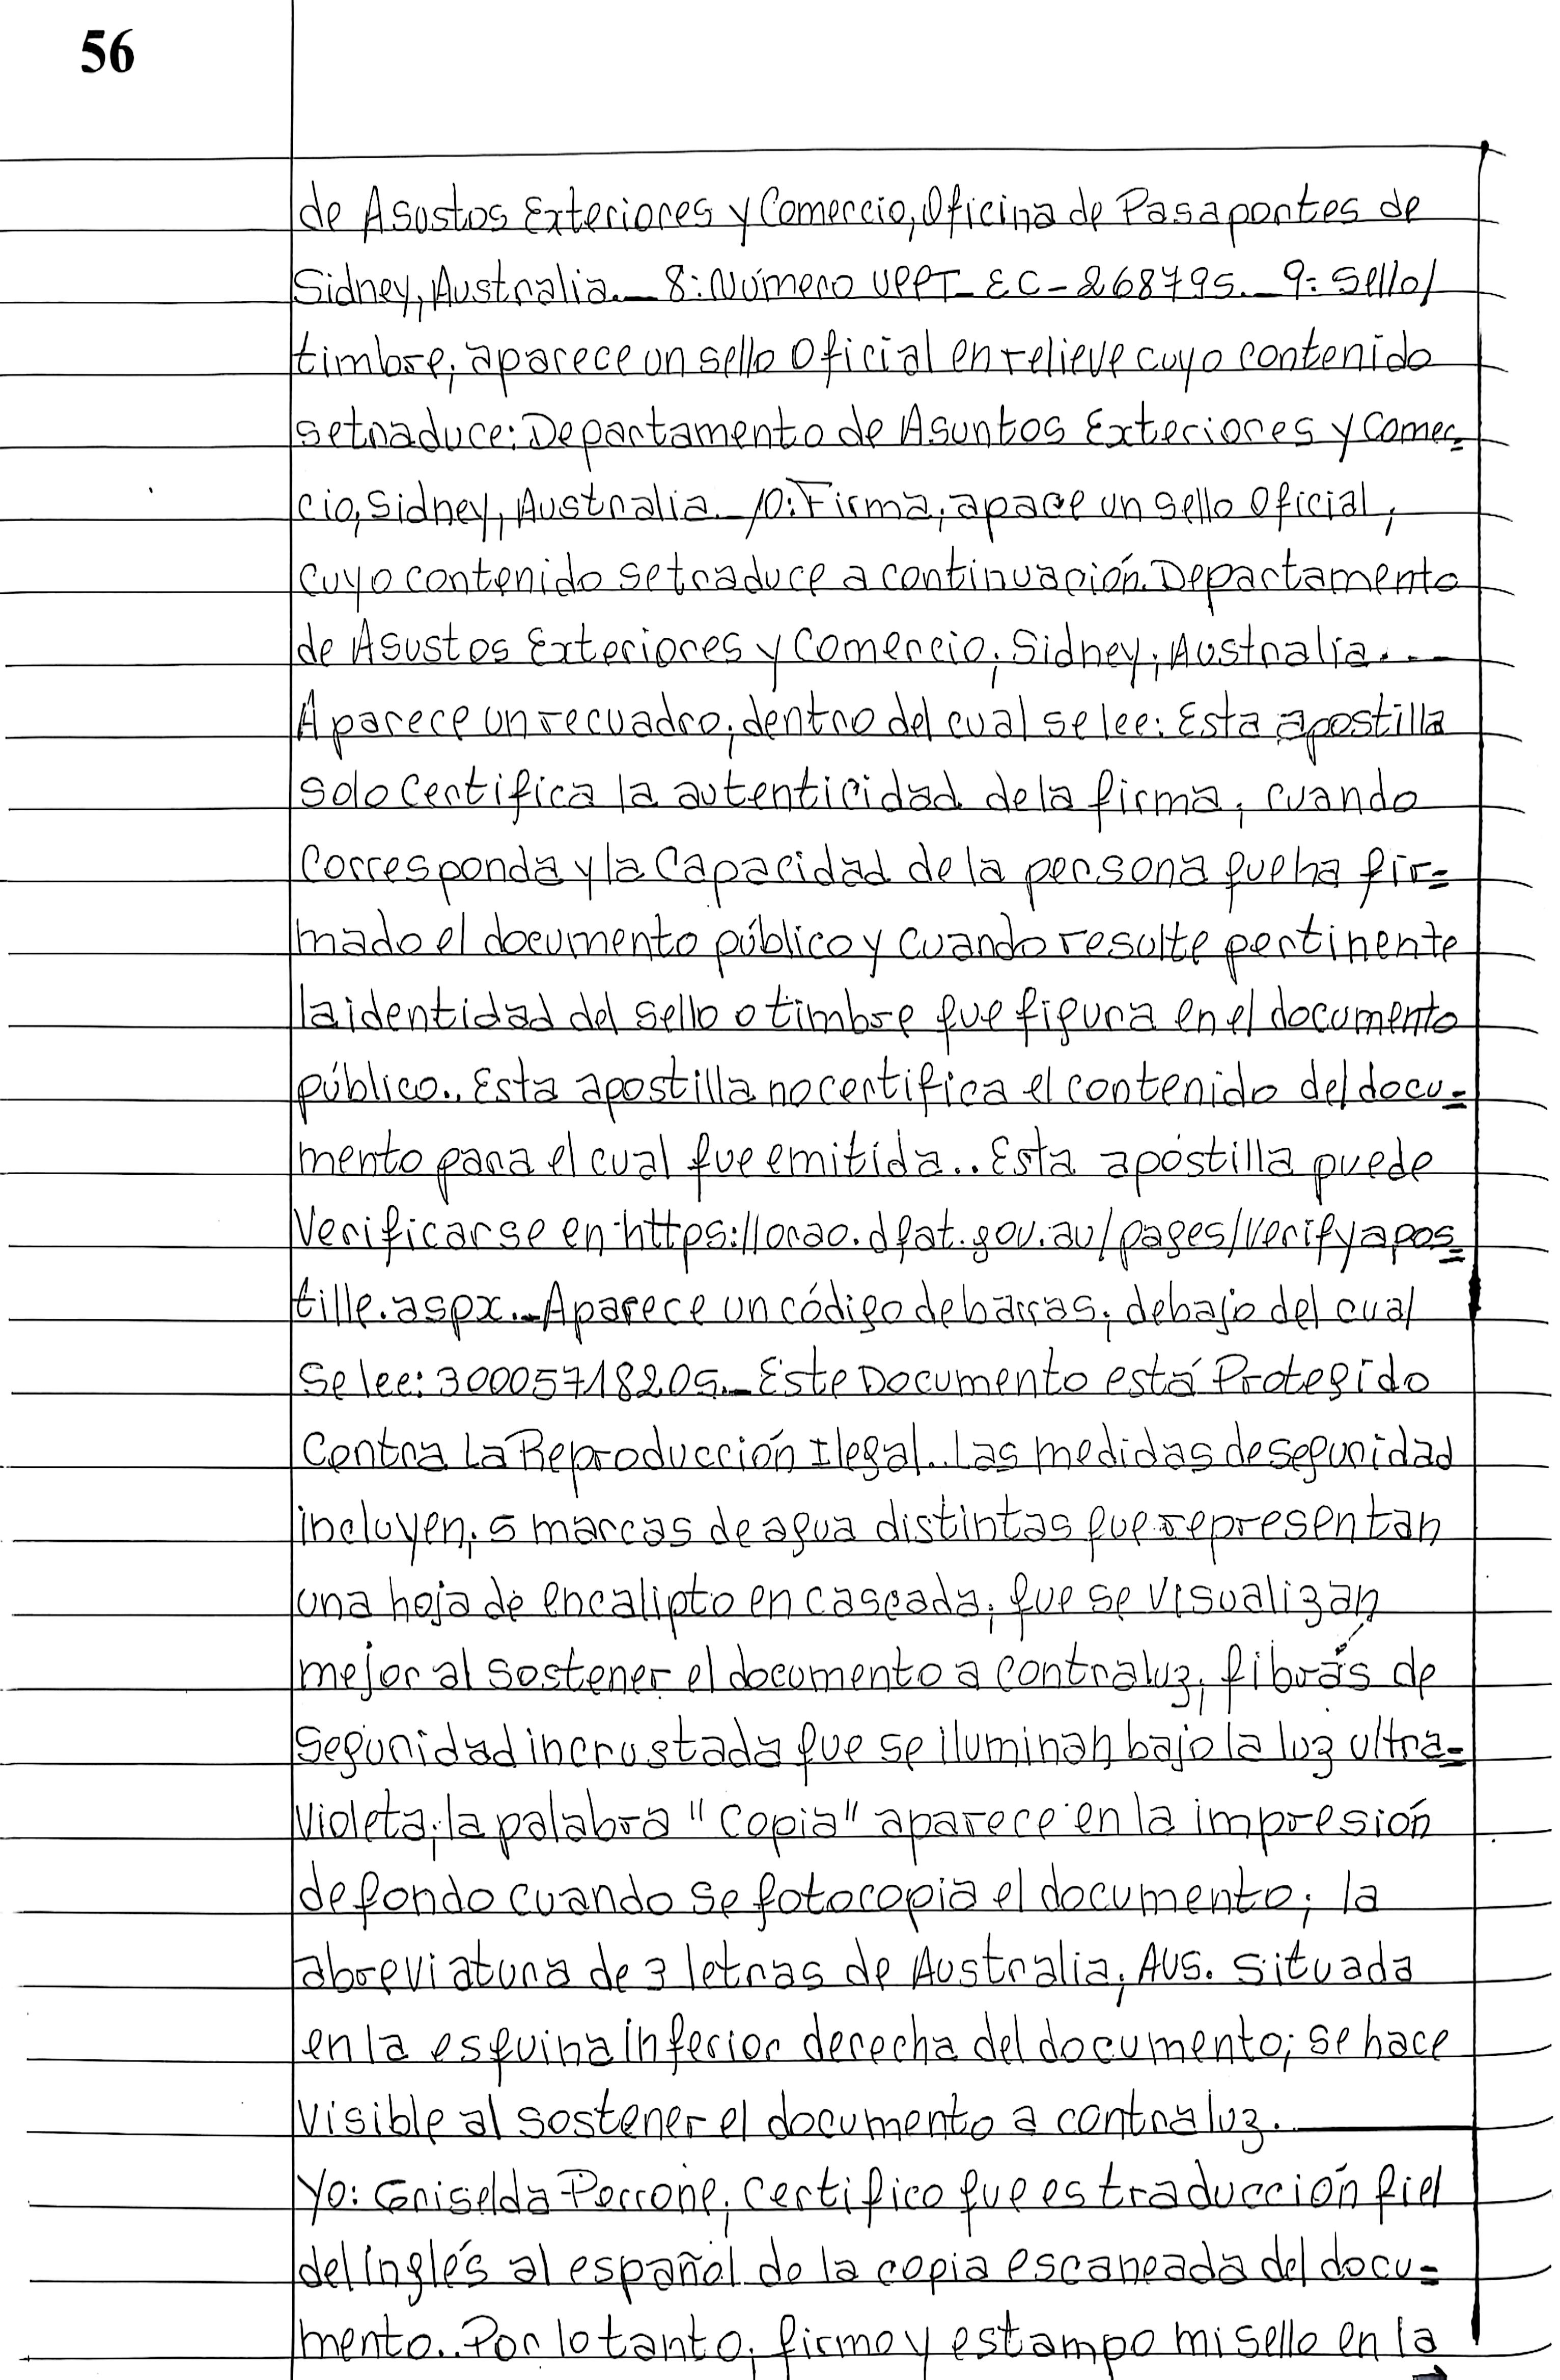 56
de Asustos Exteriores y Comercio, Oficina de Pasaportes de
Sidney, Australia._ 8: Número VPPT_EC_268795._ 9: Sello/
timbre, aparece un sello Oficial en relieve cuyo contenido
se traduce: Departamento de Asuntos Exteriores y Comer=
cio, Sidney, Australia._ 10: Firma, apace un sello Oficial,
cuyo contenido se traduce a continuación. Departamento
de Asustos Exteriores y Comercio, Sidney, Australia._
Aparece un recuadro, dentro del cual se lee: Esta apostilla
solo Certifica la autenticidad de la firma, cuando
Corresponda y la Capacidad de la persona que ha fir=
mado el documento público y cuando resulte pertinente
la identidad del sello o timbre que figura en el documento
público.. Esta apostilla no certifica el contenido del docu=
mento para el cual fue emitida.. Esta apostilla puede
Verificarse en https://orao.dfat.gov.au/pages/verifyapos=
tille.aspx._ Aparece un código de barras, debajo del cual
Se lee: 30005718205._ Este Documento está Protegido
Contra La Reproducción Ilegal.. Las medidas de seguridad
incluyen, 5 marcas de agua distintas que representan
una hoja de encalipto en cascada, que se visualizan
mejor al sostener el documento a contraluz, fibras de
Seguridad incrustada que se iluminan bajo la luz ultra=
violeta, la palabra "Copia" aparece en la impresión
de fondo cuando se fotocopia el documento; la
abreviatura de 3 letras de Australia, AUS. situada
en la esquina inferior derecha del documento; se hace
visible al sostener el documento a contraluz.
Yo: Griselda Perrone, Certifico que es traducción fiel
del inglés al español de la copia escaneada del docu=
mento.. Por lo tanto, firmo y estampo mi sello en la